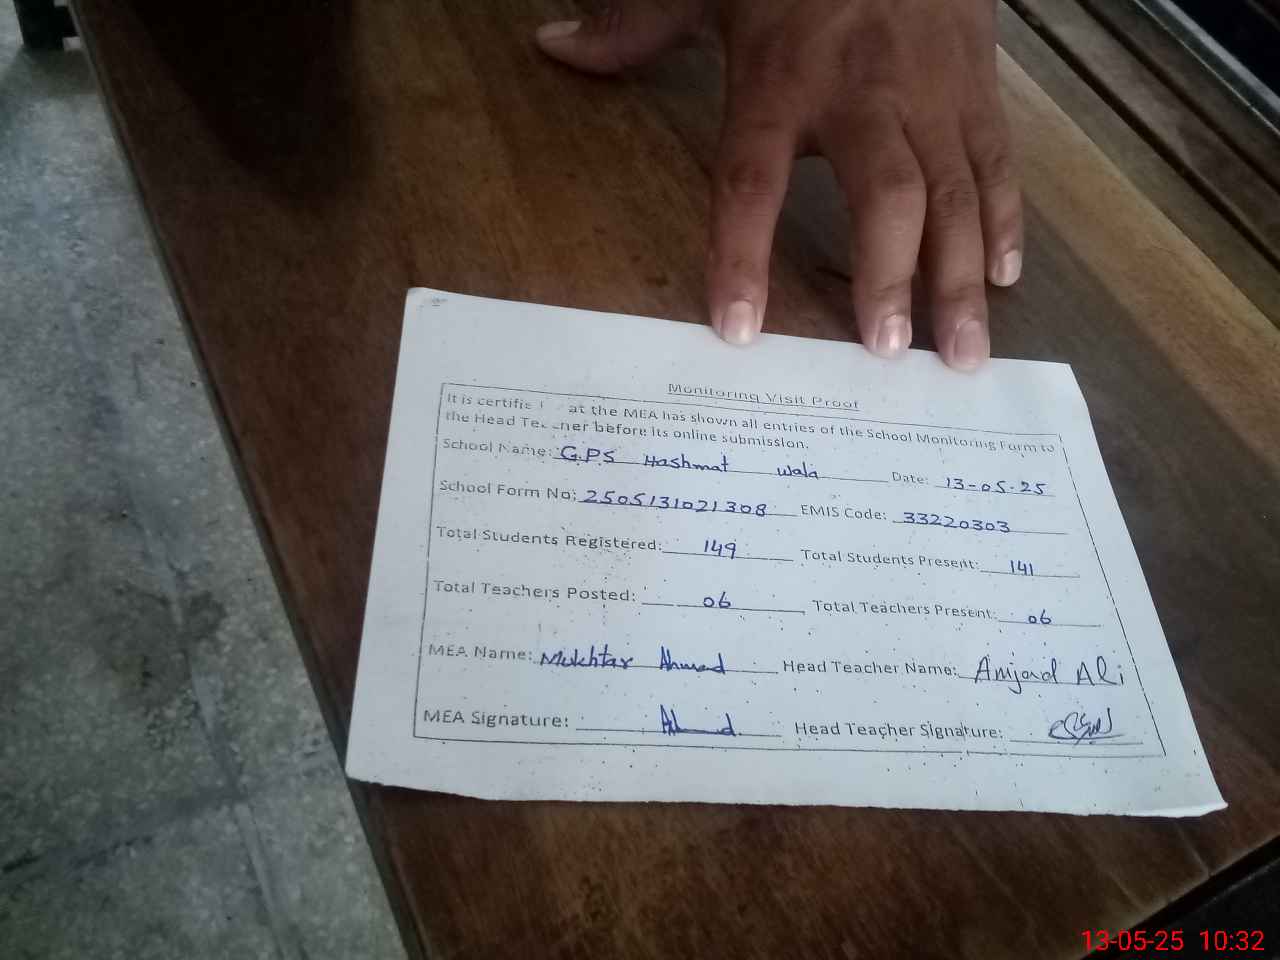 Monitoring Visit Proof
It is certifie at the MEA has shown all entries of the School Monitoring Form to
the Head Teacher before its online submission.
School Name: G.P.S Hashmat wala Date: 13-05-25
School Form No: 2505131021308 EMIS Code: 33220303
Total Students Registered: 149 Total Students Present: 141
Total Teachers Posted: 06 Total Teachers Present: 06
MEA Name: Mukhtar Ahmad Head Teacher Name: Amjad Ali
MEA Signature: Head Teacher Signature:
13-05-25 10:32